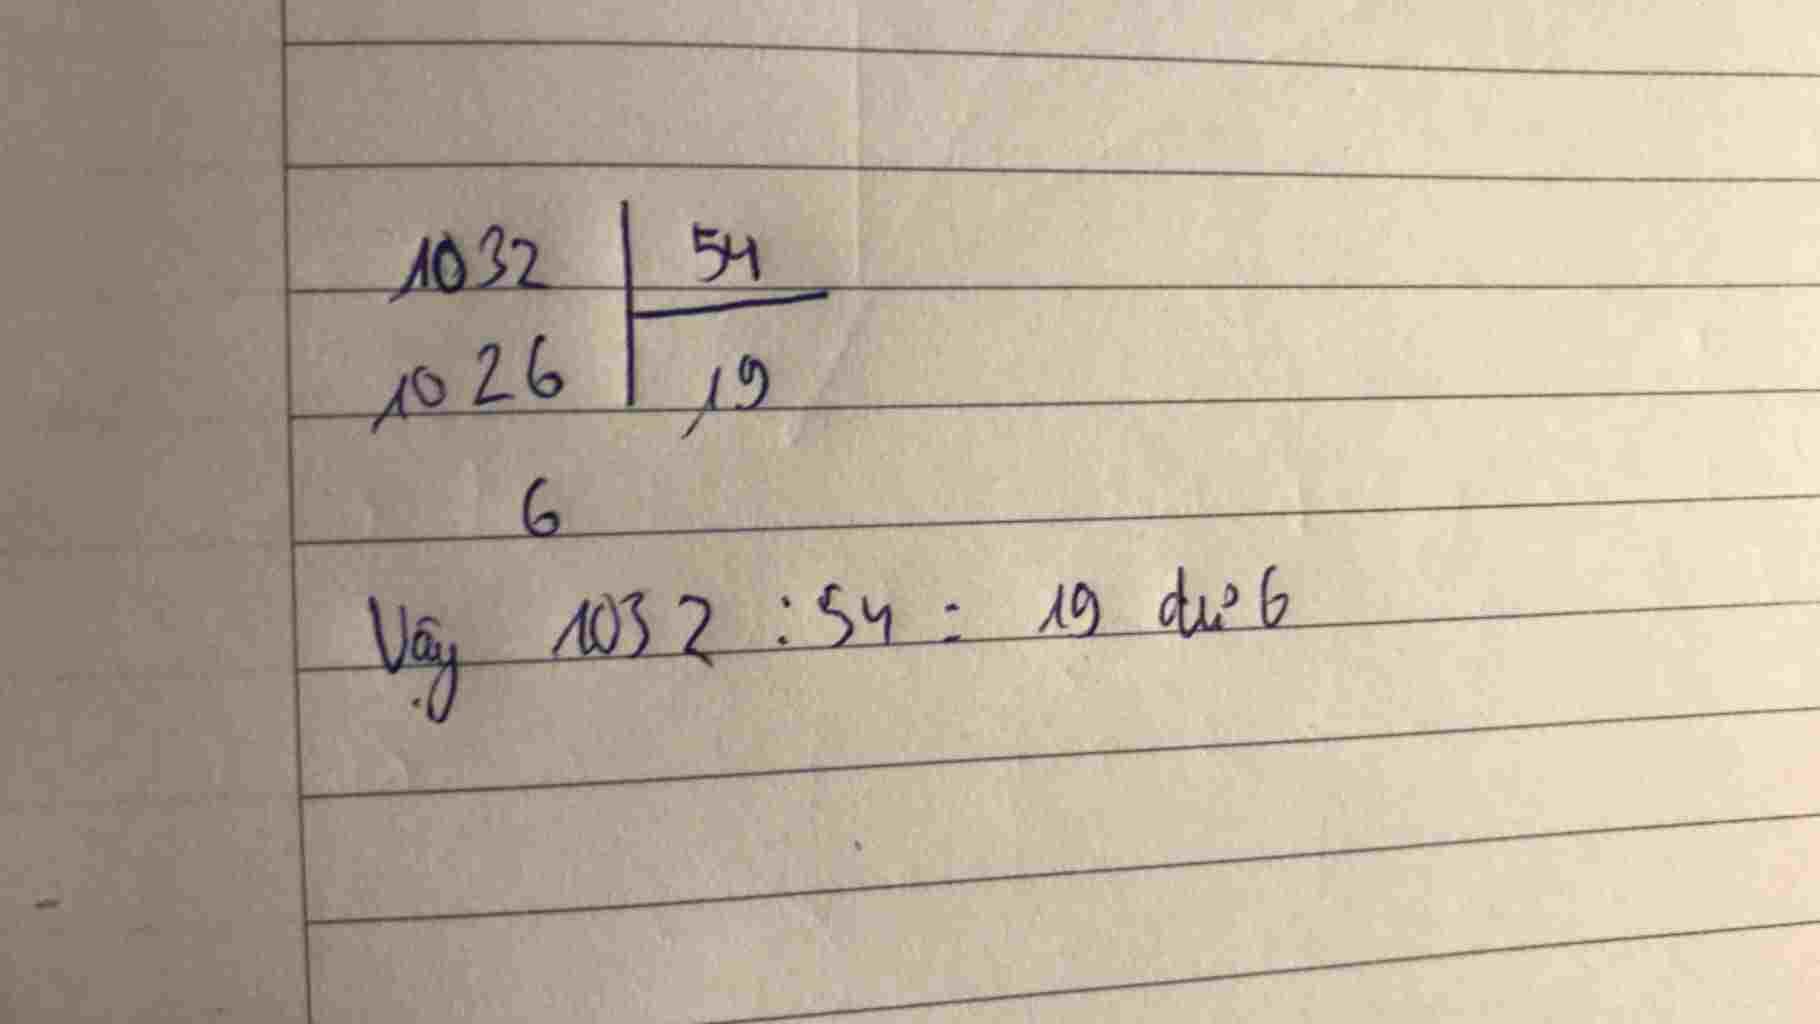 1032 | 54
1026 | 19
6
Vậy 1032 : 54 = 19 dư 6